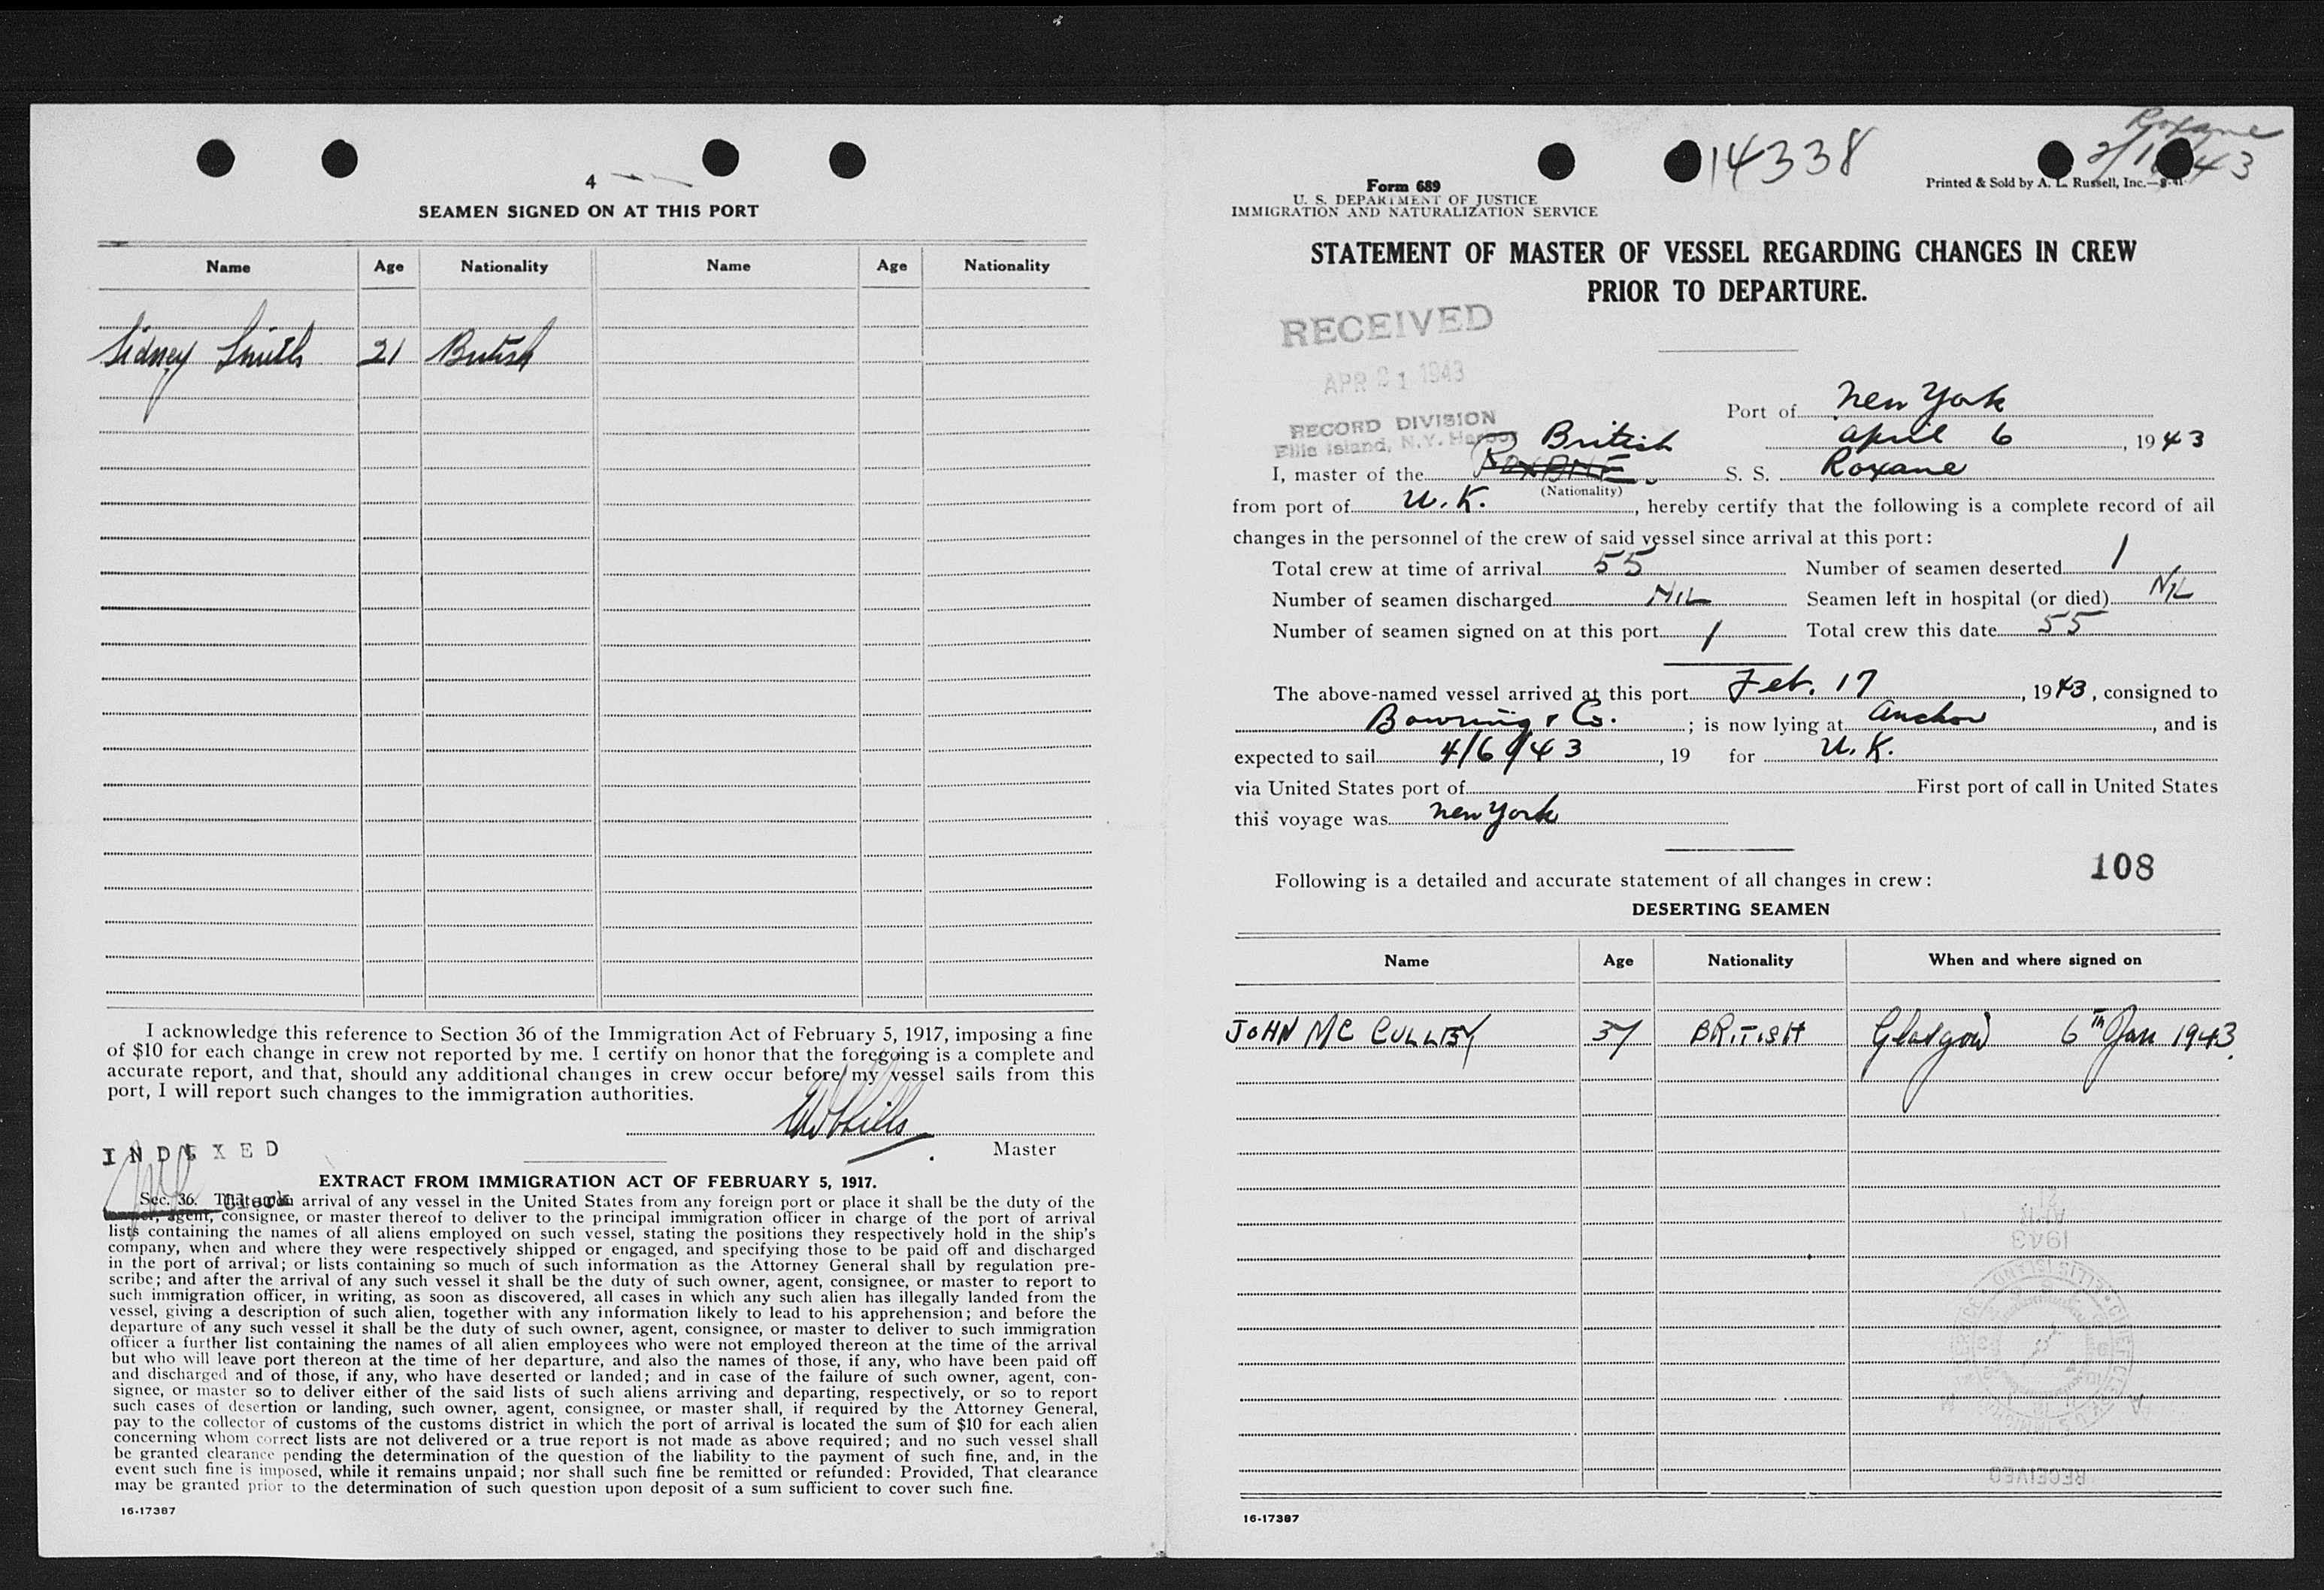 4
SEAMEN SIGNED ON AT THIS PORT
Name Age Nationality Name Age Nationality
Sidney Smith 21 British
I acknowledge this reference to Section 36 of the Immigration Act of February 5, 1917, imposing a fine
of $10 for each change in crew not reported by me. I certify on honor that the foregoing is a complete and
accurate report, and that, should any additional changes in crew occur before my vessel sails from this
port, I will report such changes to the immigration authorities.
Master
INDEXED
EXTRACT FROM IMMIGRATION ACT OF FEBRUARY 5, 1917.
Clerk
Sec. 36. That upon arrival of any vessel in the United States from any foreign port or place it shall be the duty of the
owner, agent, consignee, or master thereof to deliver to the principal immigration officer in charge of the port of arrival
lists containing the names of all aliens employed on such vessel, stating the positions they respectively hold in the ship's
company, when and where they were respectively shipped or engaged, and specifying those to be paid off and discharged
in the port of arrival; or lists containing so much of such information as the Attorney General shall by regulation pre-
scribe; and after the arrival of any such vessel it shall be the duty of such owner, agent, consignee, or master to report to
such immigration officer, in writing, as soon as discovered, all cases in which any such alien has illegally landed from the
vessel, giving a description of such alien, together with any information likely to lead to his apprehension; and before the
departure of any such vessel it shall be the duty of such owner, agent, consignee, or master to deliver to such immigration
officer a further list containing the names of all alien employees who were not employed thereon at the time of the arrival
but who will leave port thereon at the time of her departure, and also the names of those, if any, who have been paid off
and discharged and of those, if any, who have deserted or landed; and in case of the failure of such owner, agent, con-
signee, or master so to deliver either of the said lists of such aliens arriving and departing, respectively, or so to report
such cases of desertion or landing, such owner, agent, consignee, or master shall, if required by the Attorney General,
pay to the collector of customs of the customs district in which the port of arrival is located the sum of $10 for each alien
concerning whom correct lists are not delivered or a true report is not made as above required; and no such vessel shall
be granted clearance pending the determination of the question of the liability to the payment of such fine, and, in the
event such fine is imposed, while it remains unpaid; nor shall such fine be remitted or refunded: Provided, That clearance
may be granted prior to the determination of such question upon deposit of a sum sufficient to cover such fine.
16-17387
Roxane
14338
Form 689
Printed & Sold by A. L. Russell, Inc.
U. S. DEPARTMENT OF JUSTICE
IMMIGRATION AND NATURALIZATION SERVICE
STATEMENT OF MASTER OF VESSEL REGARDING CHANGES IN CREW
PRIOR TO DEPARTURE.
RECEIVED
APR 21 1943
RECORD DIVISION
Ellis Island, N.Y. Harbor
Port of New York
April 6, 1943
British
I, master of the ROXANE S. S. Roxane
(Nationality)
from port of U.K., hereby certify that the following is a complete record of all
changes in the personnel of the crew of said vessel since arrival at this port:
Total crew at time of arrival 55 Number of seamen deserted 1
Number of seamen discharged NIL Seamen left in hospital (or died) NIL
Number of seamen signed on at this port 1 Total crew this date 55
The above-named vessel arrived at this port Feb. 17, 1943, consigned to
Bowring & Co.; is now lying at Anchor, and is
expected to sail 4/6/43, 19 for U.K.
via United States port of First port of call in United States
this voyage was New York
108
Following is a detailed and accurate statement of all changes in crew:
DESERTING SEAMEN
Name Age Nationality When and where signed on
JOHN MC CULLEY 37 BRITISH Glasgow 6th Jan 1943
1943
RECEIVED
16-17387